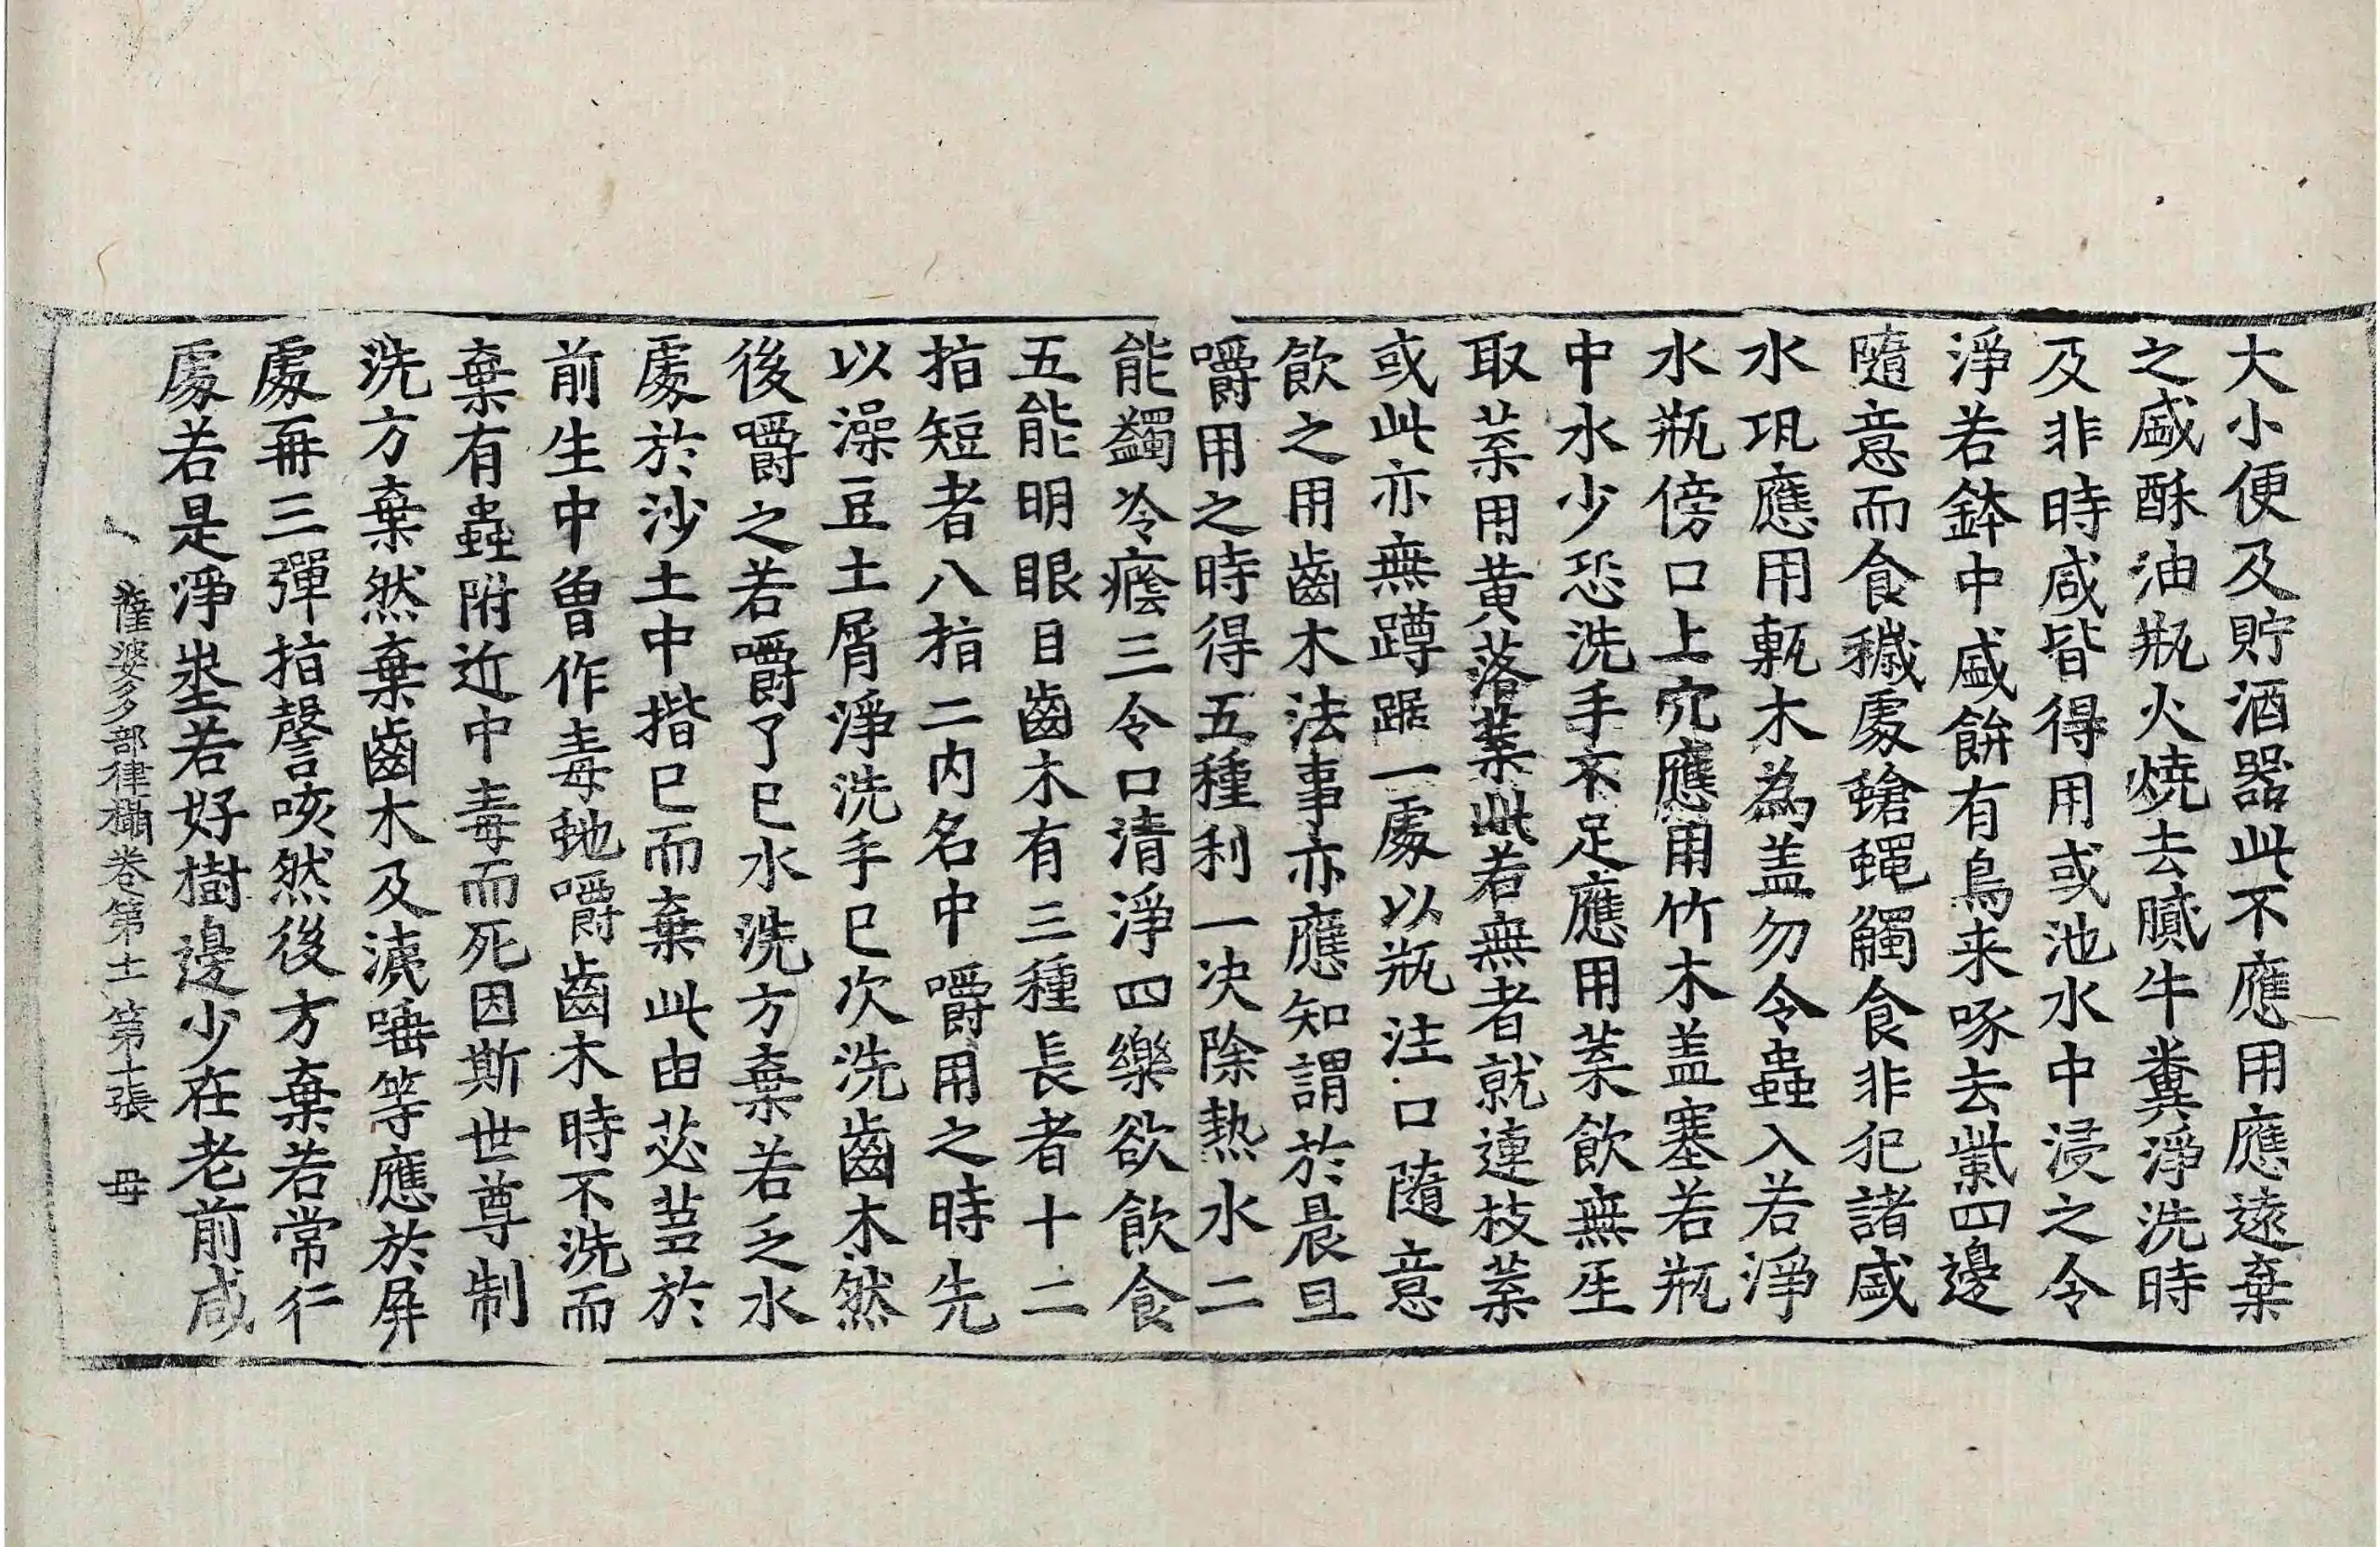 大小便及貯酒器此不應用應遠棄
之盛酥油瓶火燒去膩牛糞淨洗時
及非時咸皆得用或池水中浸之令
淨若鉢中盛餅有鳥来啄去觜四邊
隨意而食穢處蛆蠅觸食非犯諸盛
水瓨應用甎木為盖勿令蟲入若淨
水瓶傍口上穴應用竹木盖塞若瓶
中水少恐洗手不足應用葉飲無生
取葉用黄落葉此若無者就連枝葉
或此亦無蹲踞一處以瓶注口隨意
飲之用齒木法事亦應知謂於晨旦
嚼用之時得五種利一决除熱水二
能蠲冷癊三令口清淨四樂欲飲食
五能明眼目齒木有三種長者十二
指短者八指二内名中嚼用之時先
以澡豆土屑淨洗手已次洗齒木然
後嚼之若嚼了已水洗方棄若乏水
處於沙土中揩已而棄此由苾蒭於
前生中曾作毒虵嚼齒木時不洗而
棄有蟲附近中毒而死因斯世尊制
洗方棄然棄齒木及洟唾等應於屏
處再三彈指謦咳然後方棄若常行
處若是淨塋若好樹邊少在老前咸
薩婆多部律攝卷第十一 第十張 毋